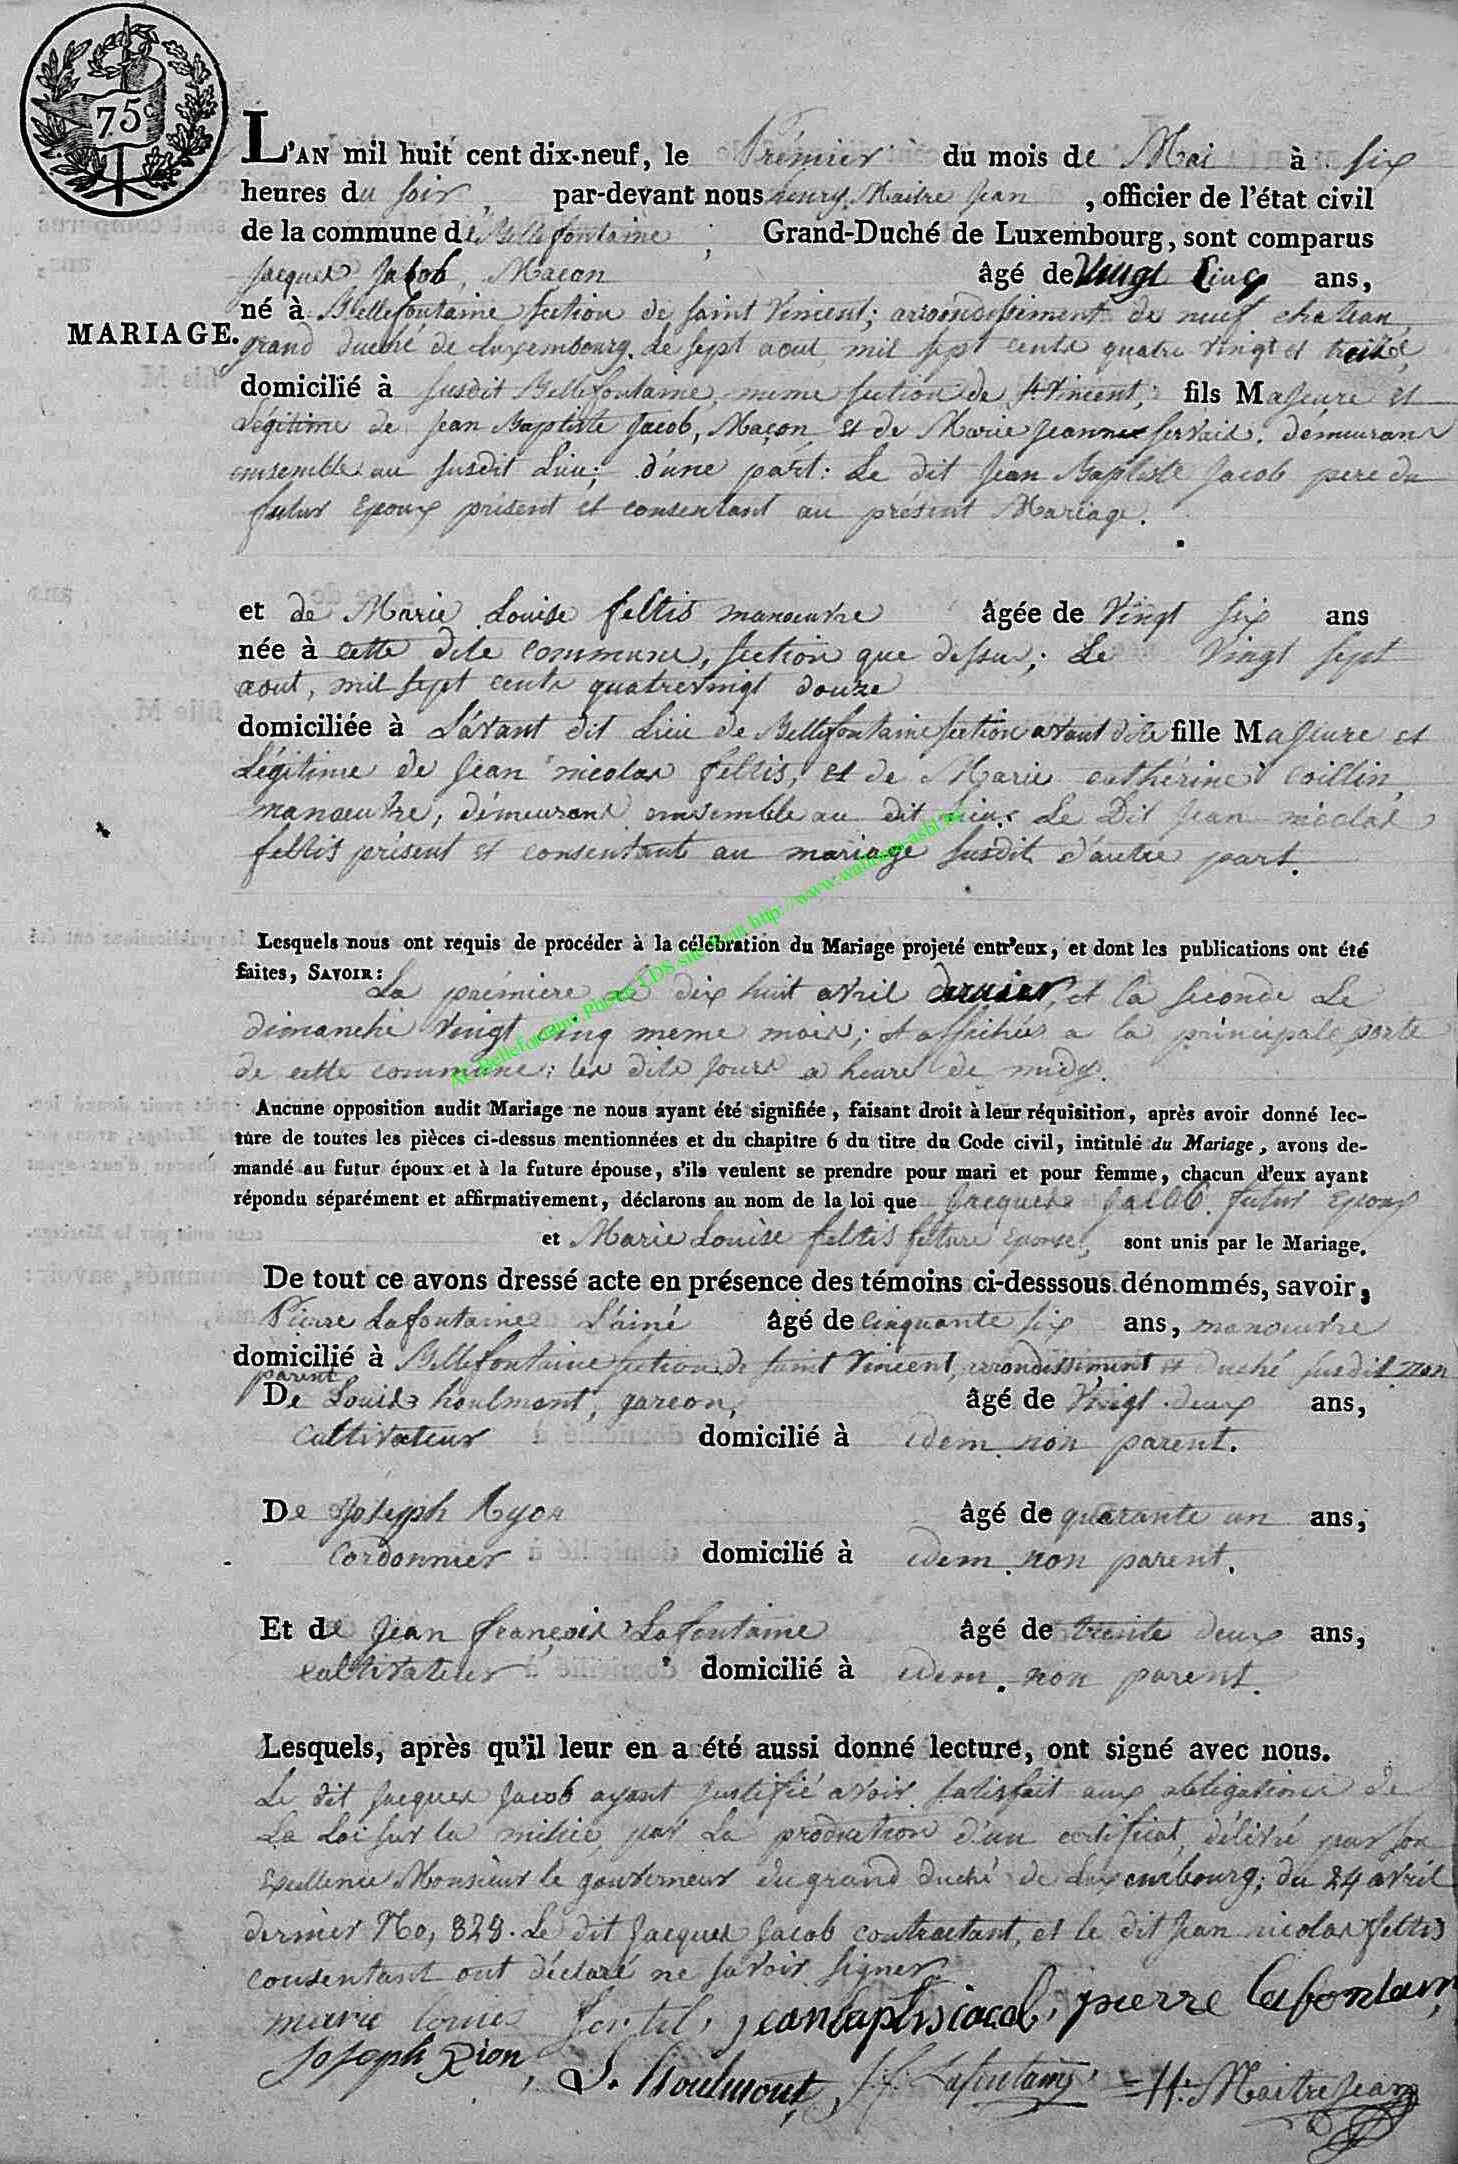 75c
L'AN mil huit cent dix-neuf, le Prémier du mois de Mai à six
heures du soir, par-devant nous henry Maitre Jean, officier de l'état civil
de la commune de Bellefontaine, Grand-Duché de Luxembourg, sont comparus
Jacques Jacob, Macon âgé de Vingt Cinq ans,
MARIAGE.
né à Bellefontaine section de saint Vincent; arrondissement de neuf chateau,
grand duché de Luxembourg, le sept aout, mil sept cents quatre vingt et treize,
domicilié à susdit Bellefontaine, meme section de st Vincent; fils Majeure et
Légitime de Jean Baptiste Jacob, Maçon, et de Marie Jeanne Servais, demeurans
ensemble au susdit Lieu; d'une part: Le dit Jean Baptiste Jacob pere du
futur Epoux présent et consentant au présent Mariage.
et de Marie Louise feltis manœuvre âgée de Vingt six ans
née à cette dite commune, section que dessus; Le Vingt sept
aout, mil sept cents quatrevingt douze
domiciliée à L'avant dit Lieu de Bellefontaine section avant dite fille Majeure et
Légitime de Jean nicolas feltis, et de Marie cathérine Coillin,
manœuvre, démeurant ensemble au dit Lieu. Le Dit Jean nicolas
feltis présent et consentant au mariage susdit d'autre part.
Lesquels nous ont requis de procéder à la célébration du Mariage projeté entr'eux, et dont les publications ont été
faites, SAVOIR:
La prémiere le dix huit avril dernier, et la seconde Le
dimanche Vingt cinq meme mois; et affichées a la principale porte
de cette commune; les dits jours a heure de midy.
Ac Bellefontaine Photos LDS site Web http://www.wallonia-asbl.be
Aucune opposition audit Mariage ne nous ayant été signifiée, faisant droit à leur réquisition, après avoir donné lec-
ture de toutes les pièces ci-dessus mentionnées et du chapitre 6 du titre du Code civil, intitulé du Mariage, avons de-
mandé au futur époux et à la future épouse, s'ils veulent se prendre pour mari et pour femme, chacun d'eux ayant
répondu séparément et affirmativement, déclarons au nom de la loi que Jacques Jacob futur Epoux
et Marie Louise feltis future Epouse, sont unis par le Mariage.
De tout ce avons dressé acte en présence des témoins ci-desssous dénommés, savoir,
Pierre Lafontaine L'ainé âgé de Cinquante six ans, manœuvre
domicilié à Bellefontaine section de saint Vincent, arrondissiment et duché susdit non
parent
De Louis houlmont, garcon, âgé de Vingt deux ans,
Cultivateur domicilié à idem non parent.
De Joseph Ryon âgé de quarante un ans,
Cordonnier domicilié à idem non parent.
Et de Jean françois Lafontaine âgé de trente deux ans,
cultivateur domicilié à idem. non parent.
Lesquels, après qu'il leur en a été aussi donné lecture, ont signé avec nous.
Le dit Jacques Jacob ayant justifié avoir satisfait aux obligations de
La Loi sur la milice, par La production d'un certificat, délivré par son
Excellence Monsieur le gouverneur du grand duché de Luxembourg; du 24 avril
dernier No, 828. Le dit Jacques Jacob contractant, et le dit Jean nicolas feltis
consentant ont déclaré ne savoir signer
marie louis jean baptis iacob, pierre lafontain,
Joseph Rion, L. Houlmont, J. f. Lafontaine H. Maitrejean